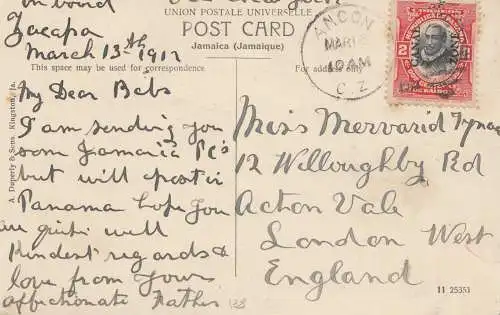 on board
Zacapa
March 13th 1912
UNION POSTALE UNIVERSELLE
POST CARD
Jamaica (Jamaique)
This space may be used for correspondence.
For address only
ANCON
MAR
10 AM
C. Z.
2
CANAL ZONE
A. Duperly & Sons, Kingston, Ja.
My Dear Bebs
I am sending you
som Jamaica PCs
but will post in
Panama hope you
are quite well
Kindest regards &
love from Your
affectionate Father
Miss Mervarid Tynan
12 Willoughby Rd
Acton Vale
London West
England
11 25353